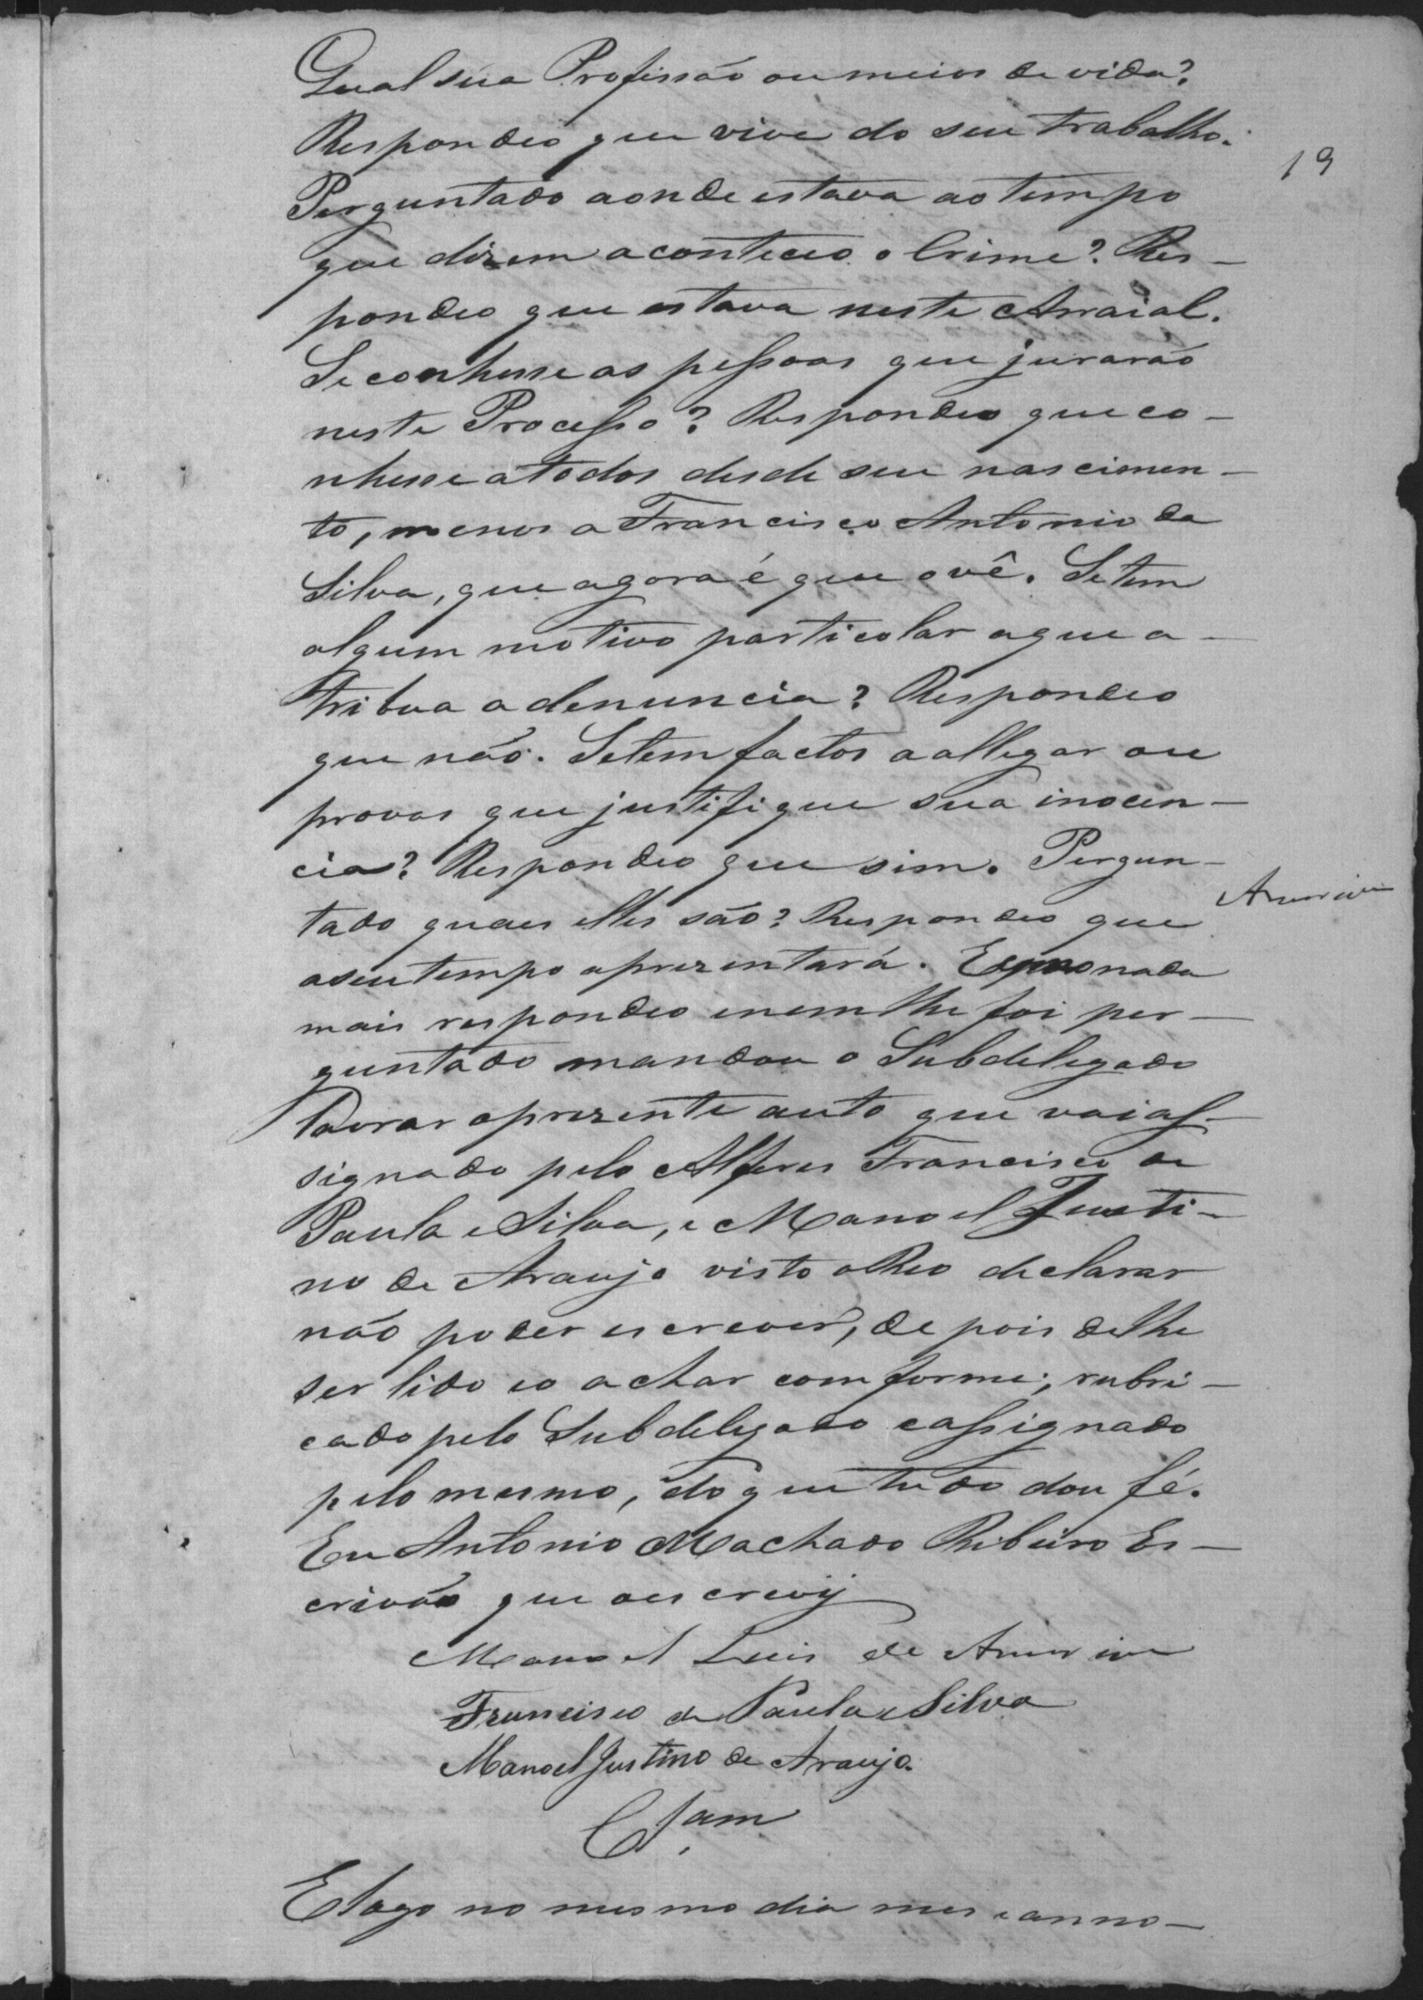 Qual sua Profissão ou meios de vida?
Respondeo que vive do seu trabalho.
19
Perguntado aonde estava ao tempo
que dizem aconteceo o Crime? Res-
pondeo que estava neste Arraial.
Se conhesse as pessoas que jurarão
neste Processo? Respondeo que co-
nhesse a todos desde seu nascimen-
to, menos a Francisco Antonio da
Silva, que agora é que o vê. Se tem
algum motivo particolar a que a-
tribua a denuncia? Respondeo
que não. Se tem factos a allegar ou
provas que justifique sua inocen-
cia? Respondeo que sim. Pergun-
tado quaes elles são? Respondeo que
Amorim
a seu tempo aprezentará. E como nada
mais respondeo e nem lhe foi per-
guntado mandou o Subdelegado
lavrar o prezente auto que vai as-
signado pelo Alferes Francisco de
Paula e Silva, e Manoel Justi-
no de Araujo visto o Reo declarar
não poder escrever, depois de lhe
ser lido e o achar comforme; rubri-
cado pelo Subdelegado e assignado
pelo mesmo, do que tudo dou fé.
Eu Antonio Machado Ribeiro Es-
crivão que o escrevij
Manoel Luis de Amorim
Francisco de Paula e Silva
Manoel Justino de Araujo.
E logo no mesmo dia mes e anno-